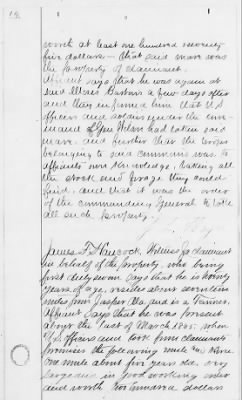 worth at least one hundred seventy
five dollars - that said mare was
the property of claimant.
Affiant says that he was again at
said Bartons a few days after
and they informed him that U.S
officers and soldiers under the com-
mand of Gen Wilson had taken said
mare. and further that the troops
belonging to said command was to
affiants own knowledge, taking all
the stock and forage they could
find. and that it was the order
of the commanding General to take
all such property.
James F. Hancock, Witness for claimant
in behalf of the property, who being
first duly sworn says that he is
years of age, resides about seventeen
miles from Jasper Ala, and is a Farmer.
Affiant says that he was present
about the last of March 1865. when
U.S officers and took from claimants
premises the following mule
one mule about five years old, very
large size in good working order
and worth two hundred dollars